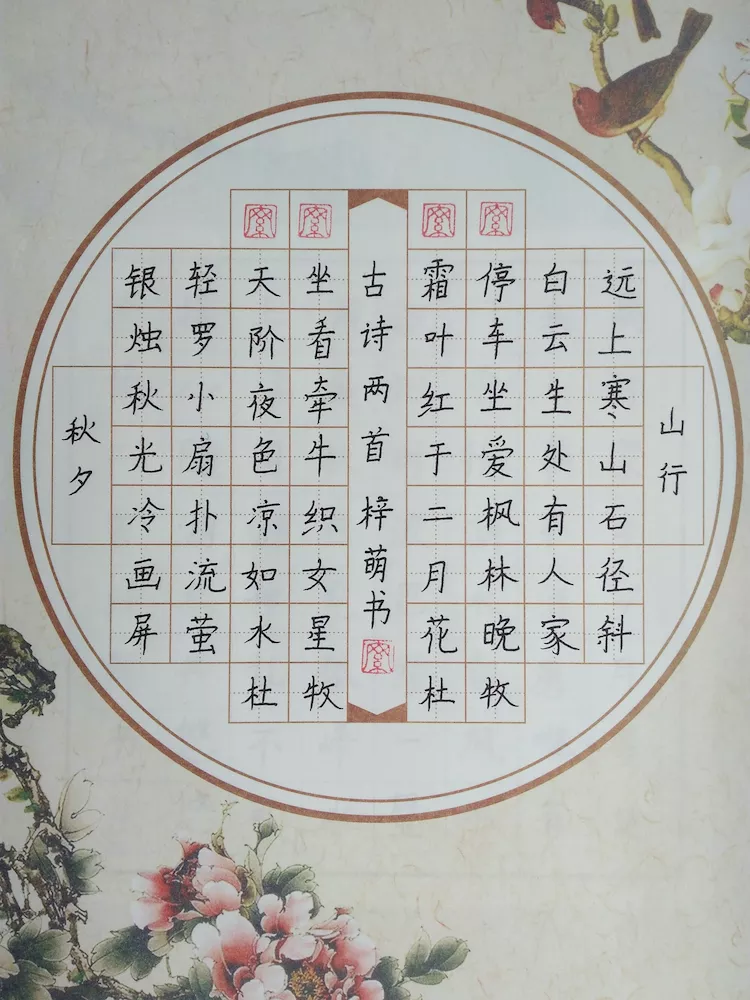 山行
远上寒山石径斜
白云生处有人家
停车坐爱枫林晚
霜叶红于二月花
杜牧
古诗两首 梓萌书
秋夕
银烛秋光冷画屏
轻罗小扇扑流萤
天阶夜色凉如水
坐看牵牛织女星
杜牧